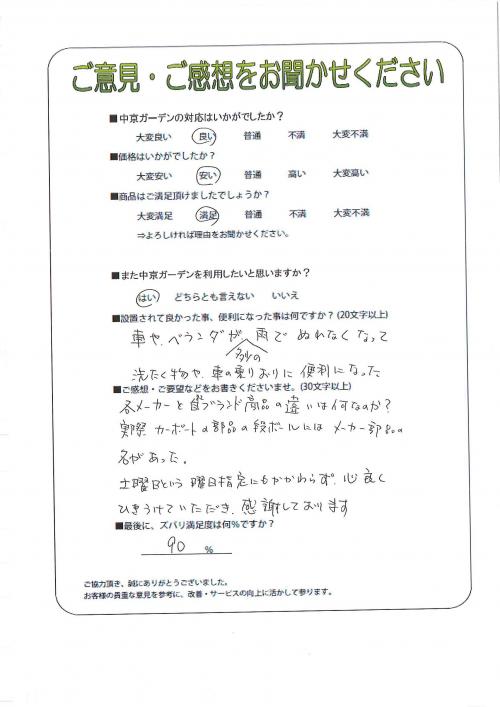 ご意見・ご感想をお聞かせください
■中京ガーデンの対応はいかがでしたか？
大変良い 良い 普通 不満 大変不満
■価格はいかがでしたか？
大変安い 安い 普通 高い 大変高い
■商品はご満足頂けましたでしょうか？
大変満足 満足 普通 不満 大変不満
⇒よろしければ理由をお聞かせください。
■また中京ガーデンを利用したいと思いますか？
はい どちらとも言えない いいえ
■設置されて良かった事、便利になった事は何ですか？(20文字以上)
車や、ベランダが 雨で ぬれなくなって
多少の
洗たく物や、車の乗りおりに 便利になった
■ご感想・ご要望などをお書きくださいませ。(30文字以上)
各メーカーと 自ブランド商品の違いは何なのか？
実際 カーポートの部品の段ボールには メーカー部品の
名があった。
土曜日という曜日指定にもかかわらず、心良く
ひきうけていただき、感謝しております
■最後に、ズバリ満足度は何%ですか？
90 %
ご協力頂き、誠にありがとうございました。
お客様の貴重な意見を参考に、改善・サービスの向上に活かして参ります。